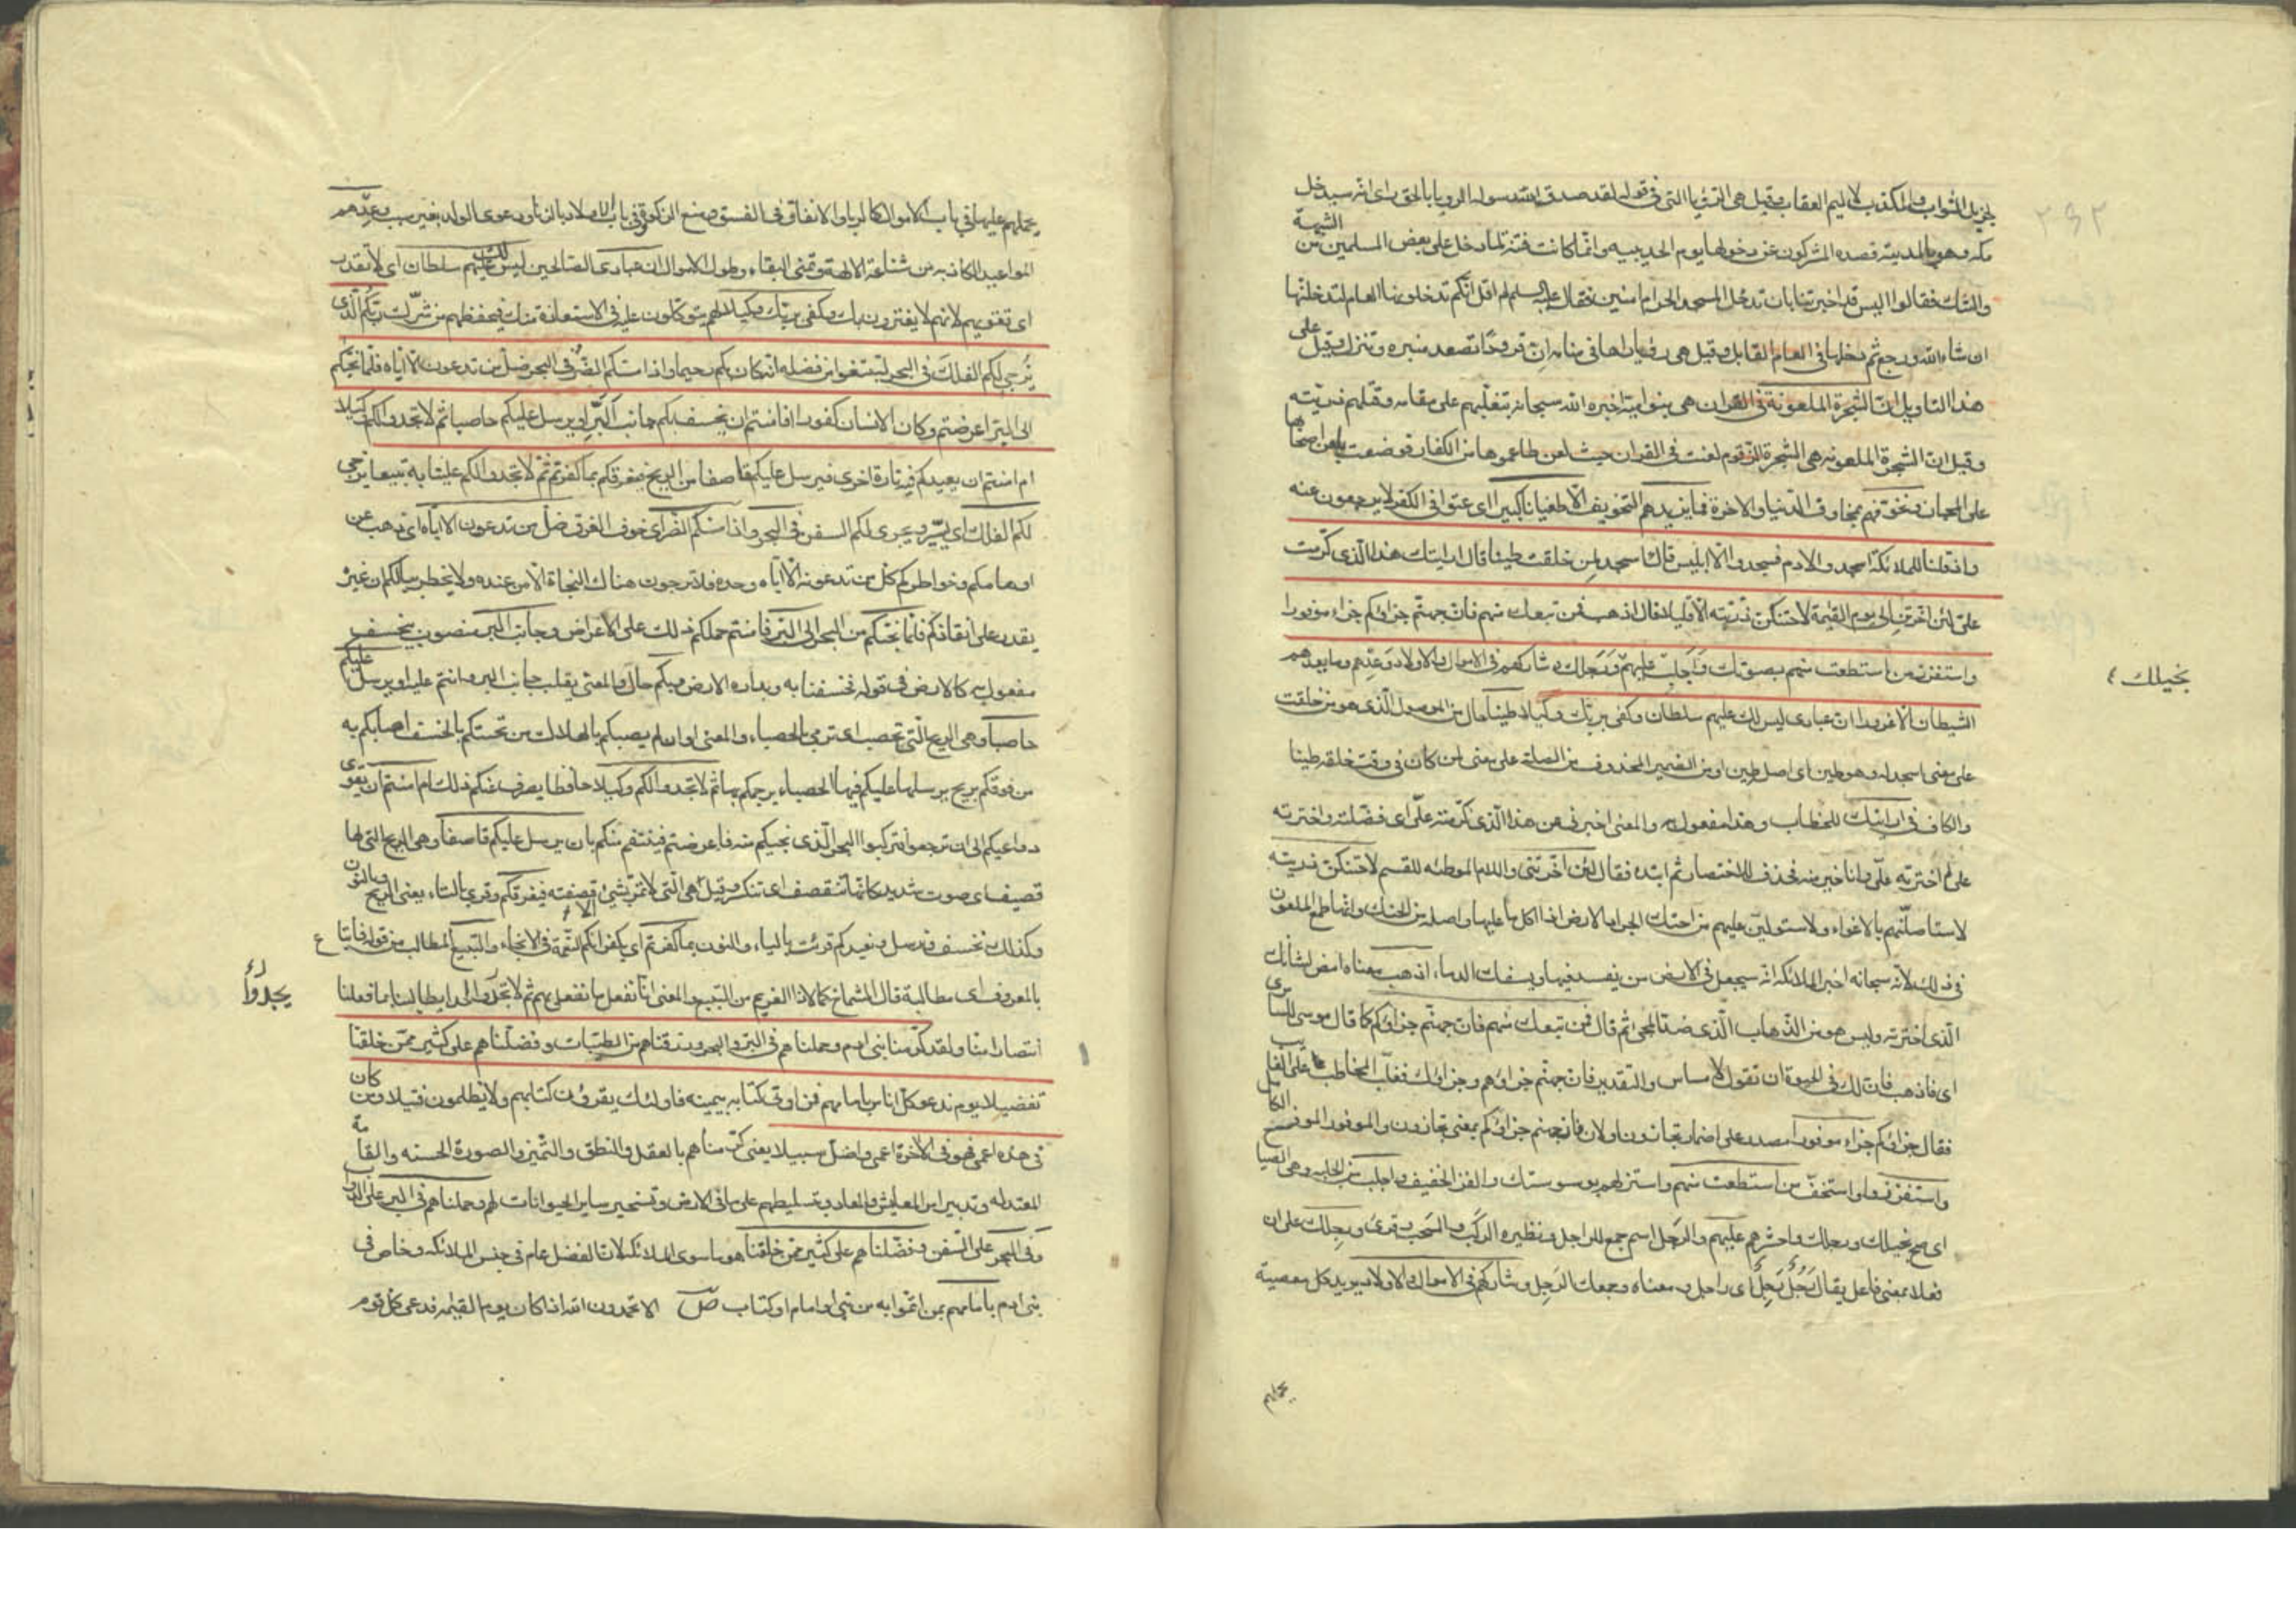 لجزيل الثواب والمكذب لاليم العقاب وقيل هى الرؤيا التى فى قوله لقد صدق الله رسوله الرويا بالحق راى انه سيدخل
مكه وهو بالمدينة فصده المشركون عن دخولها يوم الحديبيه وانما كانت فتنة لما دخل على بعض المسلمين من الشبهة
والشك فقالوا اليس قد اخبرتنا بان تدخل المسجد الحرام امنين فقال عليه السلم لم اقل انكم تدخلونها العام لتدخلنها
ان شاء الله ورجع ثم دخلها فى العام القابل وقيل هى رؤيا راها فى منامه ان قرودًا تصعد منبره وتنزل وقيل على
هذا التاويل ان الشجرة الملعونة فى القران هى بنو امية اخبره الله سبحانه بتغلبهم على مقامه وقتلهم ذريته
وقيل ان الشجرة الملعونه هى الشجرة الزقوم لعنت فى القران حيث لعن طاعموها من الكفار فوضعت بلعن اصحابها
على المجاز ونخوفهم بمخاوف الدنيا والاخرة فما يزيدهم التخويف الا طغيانا كبيرا اى عتوا فى الكفر لا يرجعون عنه
واذ قلنا للملائكة اسجدوا لادم فسجدوا الا ابليس قال ءاسجد لمن خلقت طينا قال ارايتك هذا الذى كرمت
على لئن اخرتن الى يوم القيمة لاحتنكن ذريته الا قليلا قال اذهب فمن تبعك منهم فان جهنم جزاؤكم جزاء موفورا
واستفزز من استطعت منهم بصوتك وَاَجلِب عليهم وَرَجلك وشاركهم فى الاموال والاولاد وَعِدهم وما يعدهم
بخيلك
الشيطان الا غرورا ان عبادى ليس لك عليهم سلطان وكفى بربك وكيلا طينا حال من الموصول الذى هو من خلقت
على معنى اسجد له وهو طين اى اصله طين او من الضمير المحذوف من الصلة على معنى لمن كان فى وقت خلقه طينا
والكاف فى ارايتك للخطاب وهذا مفعول به والمعنى اخبرنى عن هذا الذى كرمته علىّ اى فضلته واخترته
على لم اخترته علىّ وانا خير منه فحذف للاختصار ثم ابتدء فقال لئن اخرتنى واللام الموطئه للقسم لاحتنكن ذريته
لاستاصلنهم بالاغواء ولاستولين عليهم من احتنك الجراد الارض اذا اكل ما عليها واصله من الحنك وانما طمع الملعون
فى ذلك لانه سبحانه اخبر الملائكه انه سيجعل فى الارض من يفسد فيها ويسفك الدماء اذهب معناه امض لشانك
الذى اخترته وليس هو من الذهاب الذى ضد المجئ ثم قال فمن تبعك منهم فان جهنم جزاؤكم كما قال موسى للسامرى
اى فاذهب فان لك فى الحيوة ان تقول لا مساس والتقدير فان جهنم جزاؤهم وجزاؤك فغلب المخاطب على الغايب
فقال جزاؤكم جزاء موفورا مصدر على اضمار تجازون او لان فان جهنم جزاؤكم بمعنى تجازون والموفور الموفر الكامل
واستفزز اى واستخف من استطعت منهم واستزلهم بوسوستك والفز الخفيف واجلب من الجلبه وهى الصياح
اى صح بخيلك ورجلك واحشرهم عليهم والرَجل اسم جمع للراجل ونظيره الركب والصحب وقرئ ورجلك على ان
فعلا بمعنى فاعل يقال رَجُلٌ رَجِلٌ اى راجل ومعناه وجمعك الرَجِل وشاركهم فى الاموال والاولاد يريد كل معصية
يحملهم
يحملهم عليها فى باب الاموال كالربا والانفاق فى الفسق ومنع الزكوة وفى باب الاولاد بالزنا ودعوى الولد بغير سبب وعدهم
المواعيد الكاذبه من شفاعة الالهة وتمنى البقاء وطول الامل ان عبادى الصالحين ليس لك عليهم سلطان اى لا تقدر
اى تغويهم لانهم لا يغترون بك وكفى بربك وكيلا لهم يتوكلون عليه فى الاستعاذة منك فيحفظهم من شرك ربكم الذى
يُزجى لكم الفلك فى البحر لتبتغوا من فضله انه كان بكم رحيما واذا مسكم الضر فى البحر ضل من تدعون الا اياه فلما نجيكم
الى البر اعرضتم وكان الانسان كفورا افامنتم ان يخسف بكم جانب البَرّ او يرسل عليكم حاصبا ثم لا تجدوا لكم وكيلا
ام امنتم ان يعيدكم فيه تارة اخرى فيرسل عليكم قاصفا من الريح فيغرقكم بما كفرتم ثم لا تجدوا لكم علينا به تبيعا يزجى
لكم الفلك اى يسيّر ويجرى لكم السفن فى البحر واذا مسكم الضر اى خوف الغرق ضل من تدعون الا اياه اى ذهب عن
اوهامكم وخواطركم كل من تدعونه الا اياه وحده فلا ترجون هناك النجاة الا من عنده ولا يخطر ببالكم ان غيره
يقدر على انقاذكم فلما نجيكم من البحر الى البر فامنتم حملكم ذلك على الاعراض وجانب البر منصوب بيخسف
مفعول به كالارض فى قوله فخسفنا به وبداره الارض وبكم حال والمعنى يقلب جانب البر وانتم عليه او يرسل عليكم
حاصبا وهى الريح التى تحصب اى ترمى بالحصباء والمعنى او ان لم يصبكم بالهلاك من تحتكم بالخسف اصابكم به
من فوقكم بريح يرسلها عليكم فيها الحصباء يرجمكم بها ثم لا تجدوا لكم وكيلا حافظا يصرف عنكم ذلك ام امنتم ان يقوى
دواعيكم الى ان ترجعوا فتركبوا البحر الذى نجيكم منه فاعرضتم فينتقم منكم بان يرسل عليكم قاصفا وهى الريح التى لها
قصيف اى صوت شديد كانها تتقصف اى تتكسر وقيل هى التى لا تمر بشئ الا قصفته فيغرقكم وقرئ بالتاء يعنى الريح وبالنون
وكذلك نخسف ونرسل ونعيدكم قرئت بالياء والنون بما كفرتم اى بكفرانكم النعمة فى الانجاء والتبيع المطالب من قوله فاتباع
بالمعروف اى مطالبة قال الشماخ كما لاذ الغريم من التبيع والمعنى انا نفعل ما نفعل بهم ثم لا تجدوا احدا يطالبنا بما فعلنا
يجدوا
انتصارا منا ولقد كرمنا بنى ادم وحملناهم فى البر والبحر ورزقناهم من الطيبات وفضلناهم على كثير ممن خلقنا
تفضيلا يوم ندعو كل اناس بامامهم فمن اوتى كتابه بيمينه فاولئك يقرؤن كتابهم ولا يظلمون فتيلا ومن كان
فى هذه اعمى فهو فى الاخرة اعمى واضل سبيلا يعنى كرمناهم بالعقل والنطق والتميز والصورة الحسنه والقامة
المعتدله وتدبير امر المعاش والمعاد وبتسليطهم على ما فى الارض وتسخير ساير الحيوانات لهم وحملناهم فى البر على الدواب
وفى البحر على السفن وفضلناهم على كثير ممن خلقنا هو ما سوى الملائكه لان الفضل عام فى جنس الملائكه وخاص فى
بنى ادم بامامهم بمن ائتموا به من نبى او امام او كتاب الا تحمدون الله اذا كان يوم القيمه فدعى كل قوم